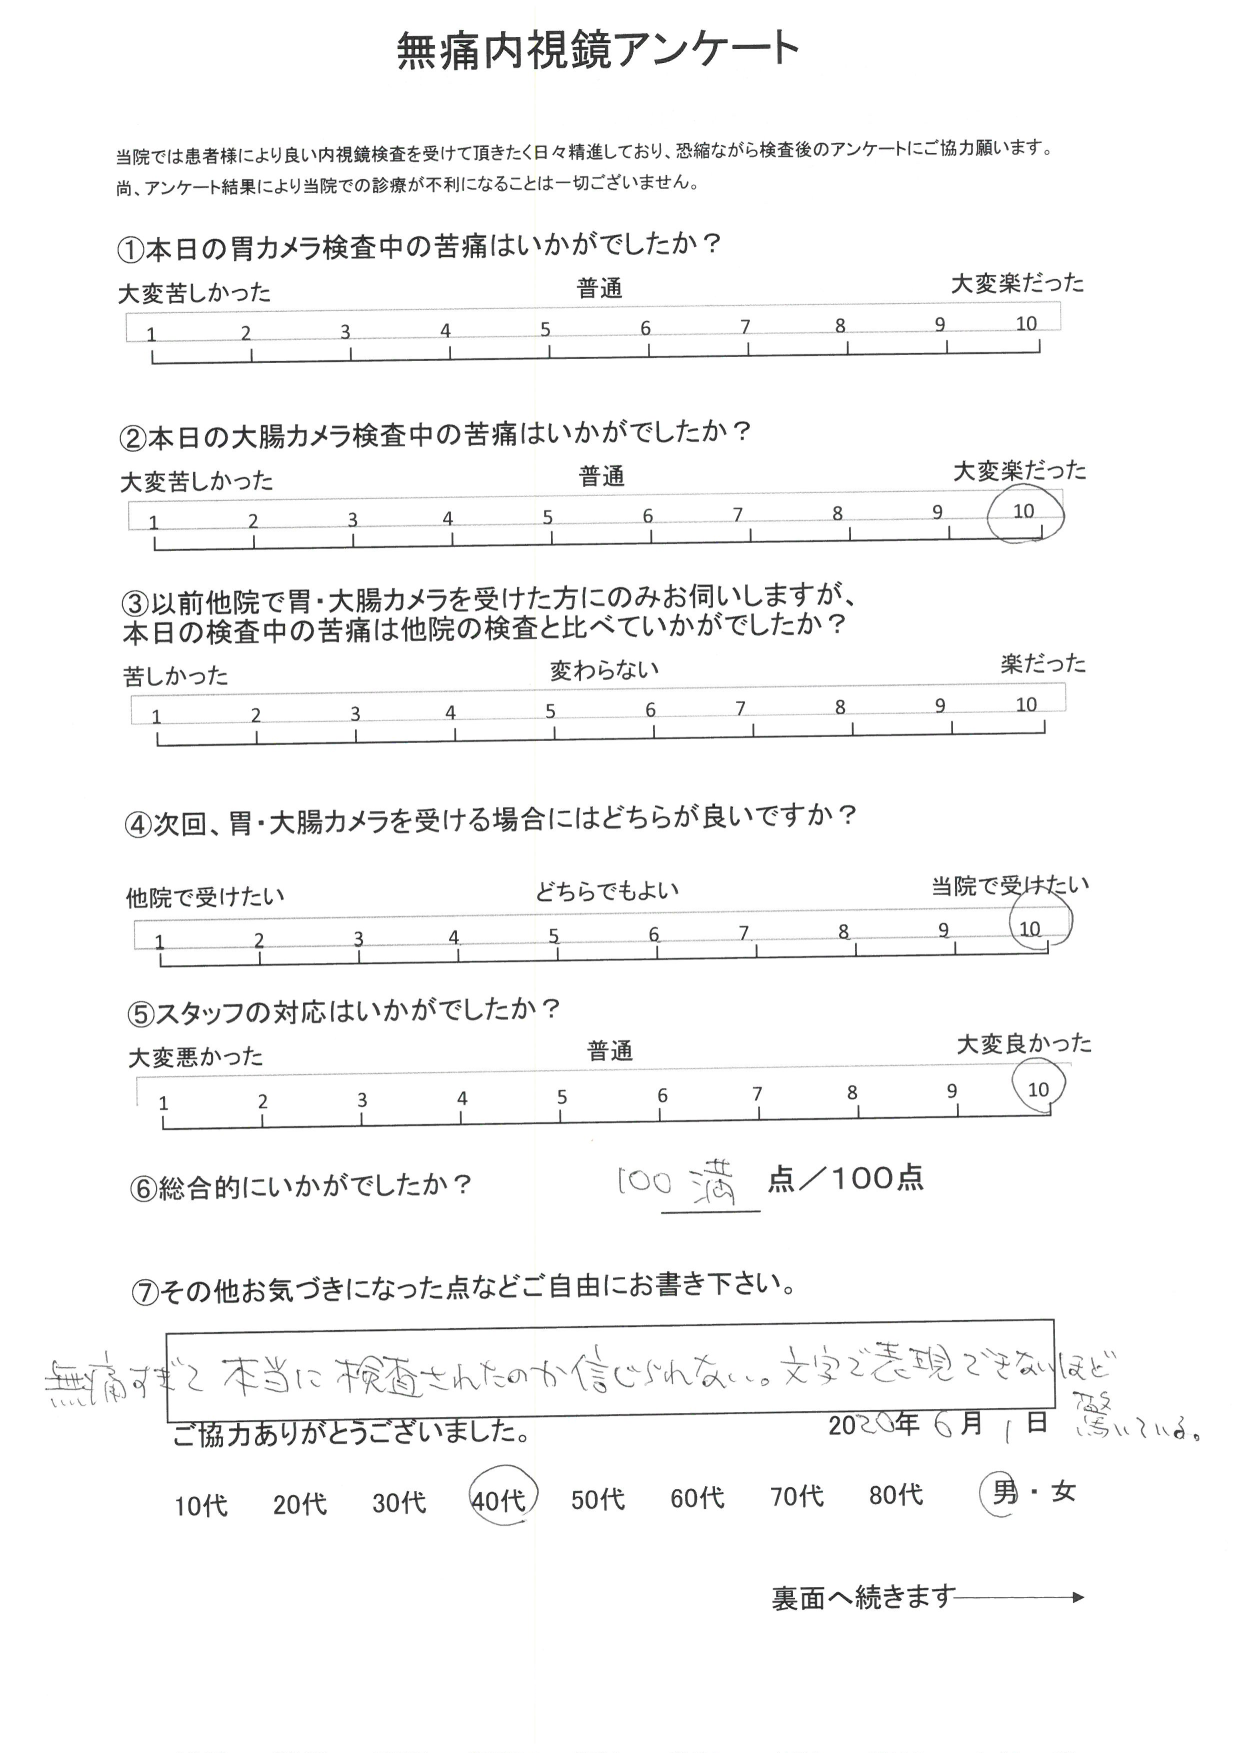 無痛内視鏡アンケート
当院では患者様により良い内視鏡検査を受けて頂きたく日々精進しており、恐縮ながら検査後のアンケートにご協力願います。
尚、アンケート結果により当院での診療が不利になることは一切ございません。
①本日の胃カメラ検査中の苦痛はいかがでしたか？
大変苦しかった 普通 大変楽だった
1 2 3 4 5 6 7 8 9 10
②本日の大腸カメラ検査中の苦痛はいかがでしたか？
大変苦しかった 普通 大変楽だった
1 2 3 4 5 6 7 8 9 10
③以前他院で胃・大腸カメラを受けた方にのみお伺いしますが、
本日の検査中の苦痛は他院の検査と比べていかがでしたか？
苦しかった 変わらない 楽だった
1 2 3 4 5 6 7 8 9 10
④次回、胃・大腸カメラを受ける場合にはどちらが良いですか？
他院で受けたい どちらでもよい 当院で受けたい
1 2 3 4 5 6 7 8 9 10
⑤スタッフの対応はいかがでしたか？
大変悪かった 普通 大変良かった
1 2 3 4 5 6 7 8 9 10
⑥総合的にいかがでしたか？ 100 満 点／100点
⑦その他お気づきになった点などご自由にお書き下さい。
無痛すぎて 本当に 検査されたのか信じられない。文字で表現できないほど
驚いている。
ご協力ありがとうございました。 2020年 6月 1日
10代 20代 30代 40代 50代 60代 70代 80代 男・女
裏面へ続きます